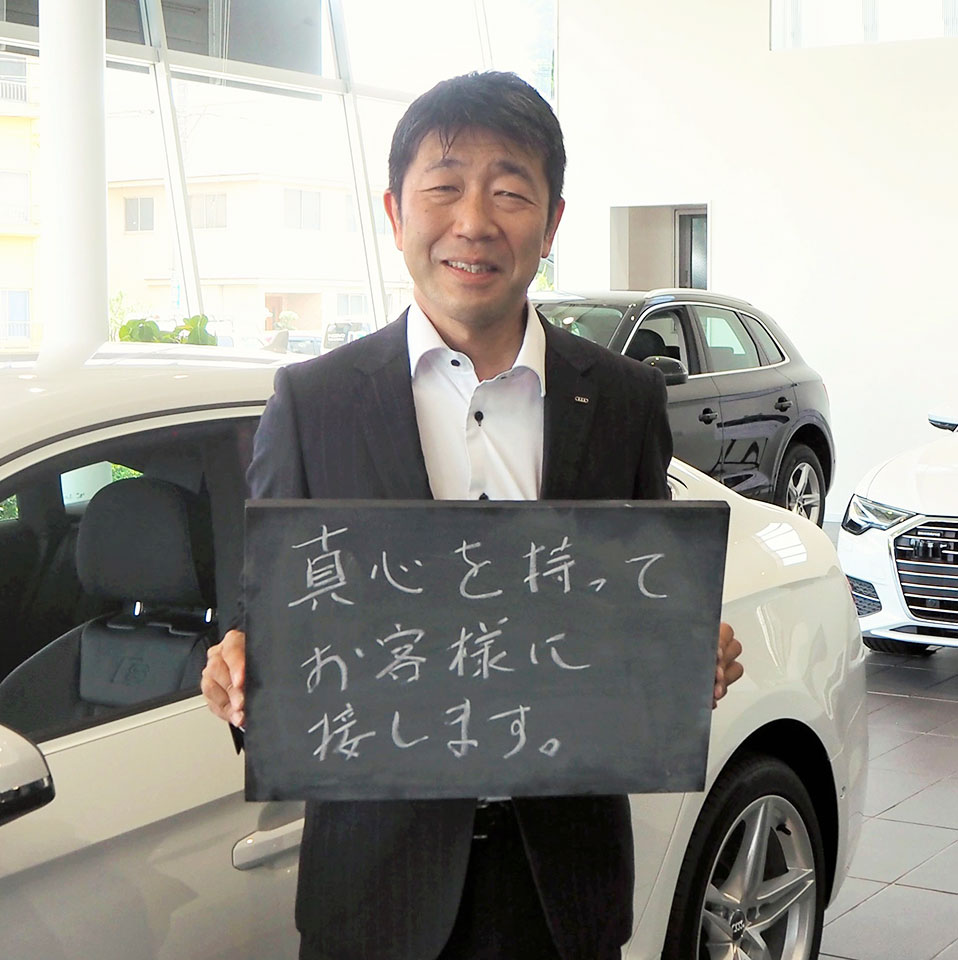 真心を持って
お客様に
接します。